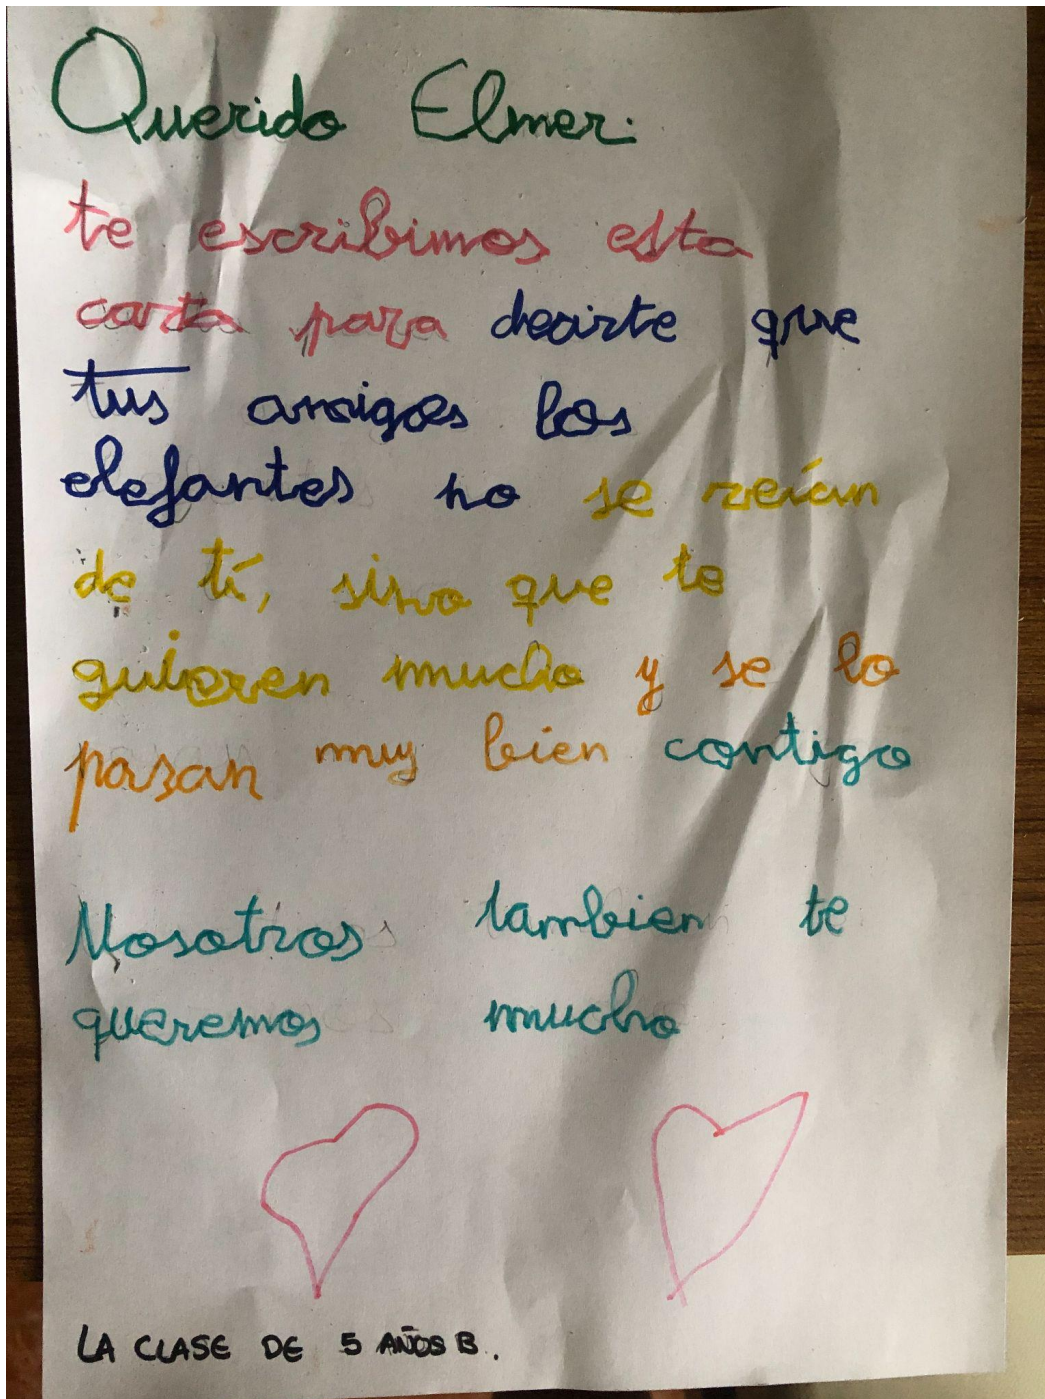 Querido Elmer:
te escribimos esta
carta para decirte que
tus amigos los
elefantes no se reían
de tí, sino que te
quieren mucho y se lo
pasan muy bien contigo
Nosotros tambien te
queremos mucho
LA CLASE DE 5 AÑOS B.